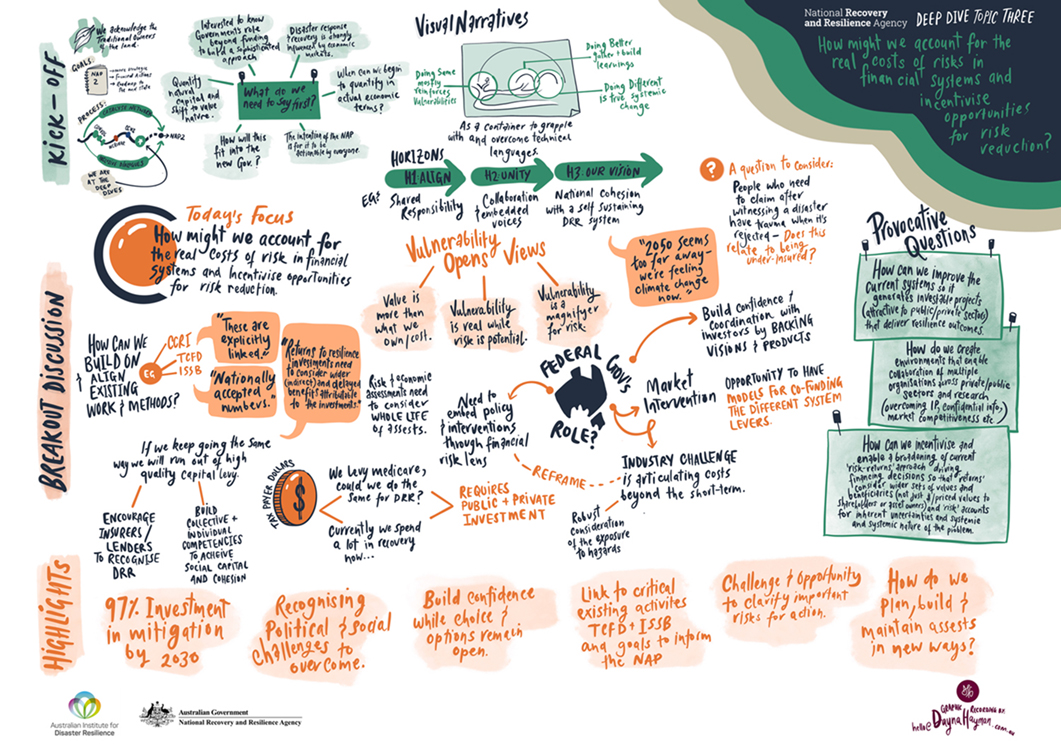 National Recovery
and Resilience Agency
DEEP DIVE TOPIC THREE
How might we account for the
real costs of risks in
financial systems and
incentivise
opportunities
for risk
reduction?
KICK-OFF
We acknowledge the
Traditional owners of
the land.
GOALS:
NAP
2
PROCESS:
NAP2
WE ARE
AT THE
DEEP
DIVES
Interested to know
Governments role
beyond funding
to build a sophisticated
approach
Disaster response
& recovery is strongly
influenced by economic
markets.
Quantify
natural
capital and
shift to value
nature.
What do we
need to say first?
When can we begin
to quantify in
actual economic
terms?
How will this
fit into the
new Gov.?
The intention of the NAP
is for it to be
actionable by everyone.
VISUAL NARRATIVES
Doing Same
mostly
reinforces
Vulnerabilities
Doing Better
gather + build
learnings
Doing Different
is true systemic
change
As a container to grapple
with and overcome technical
languages.
HORIZONS
H1: ALIGN
H2: UNITY
H3: OUR VISION
EGS:
Shared
Responsibility
Collaboration
& embedded
voices
National Cohesion
with a self sustaining
DRR system
?
A question to consider:
People who need
to claim after
witnessing a disaster
have trauma when it's
rejected – Does this
relate to being
under-insured?
Today's Focus
How might we account for
the real costs of risk in financial
systems and incentivise opportunities
for risk reduction.
BREAKOUT DISCUSSION
HOW CAN WE
BUILD ON
& ALIGN
EXISTING
WORK & METHODS?
EG
CCRI
TCFD
ISSB
"These are
explicitly
linked."
"Nationally
accepted
numbers."
"Returns to resilience
investments need
to consider wider
(indirect) and delayed
benefits attributable
to the investments."
Vulnerability
Opens Views
Value is
more than
what we
own/cost.
Vulnerability
is real while
risk is potential.
Vulnerability
is a
magnifier
for risk.
"2050 seems
too far away –
we're feeling
climate change
now."
Risk & economic
assessments need
to consider
WHOLE LIFE
of assests.
FEDERAL GOV'S
ROLE?
Build confidence &
coordination with
investors by BACKING
VISIONS & PRODUCTS
Market
Intervention
OPPORTUNITY TO HAVE
MODELS FOR CO-FUNDING
THE DIFFERENT SYSTEM
LEVERS.
Need to
embed policy
& interventions
through financial
risk lens
REFRAME
INDUSTRY CHALLENGE
is articulating costs
beyond the short-term.
Robust
consideration
of the exposure
to hazards
If we keep going the same
way we will run out of high
quality capital levy.
ENCOURAGE
INSURERS/
LENDERS
TO RECOGNISE
DRR
BUILD
COLLECTIVE +
INDIVIDUAL
COMPETENCIES
TO ACHEIVE
SOCIAL CAPITAL
AND COHESION
TAX PAYER DOLLARS
$
We Levy medicare,
could we do the
same for DRR?
Currently we spend
a lot in recovery
now...
REQUIRES
PUBLIC + PRIVATE
INVESTMENT
Provocative
Questions
How can we improve the
current systems so it
generates investable projects
(attractive to public/private sectors)
that deliver resilience outcomes.
How do we create
environments that enable
collaboration of multiple
organisations across private/public
sectors and research
(overcoming IP, confidential info,
market competitiveness etc.)
How can we incentivise and
enable a broadening of current
'risk-returns' approach driving
financing decisions so that 'returns'
consider wider sets of values and
beneficiaries (not just $/priced values to
shareholders or asset owners) and 'risk' accounts
for inherent uncertainties and systemic
and systemic nature of the problem.
HIGHLIGHTS
97% Investment
in mitigation
by 2030
Recognising
Political & Social
challenges to
overcome.
Build confidence
while choice &
options remain
open.
Link to critical
existing activites
TCFD + ISSB
and goals to inform
the NAP
Challenge & Opportunity
to clarify important
risks for action.
How do we
plan, build &
maintain assests
in new ways?
Australian Institute for
Disaster Resilience
Australian Government
National Recovery and Resilience Agency
GRAPHIC RECORDING BY
hello@DaynaHayman.com.au